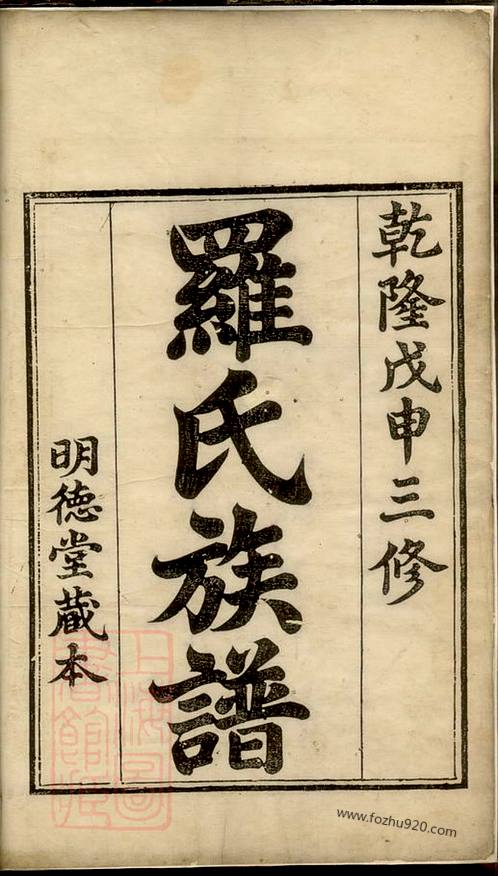 乾隆戊申三修
羅氏族譜
明德堂藏本
上海圖
書館藏
www.fozhu920.com